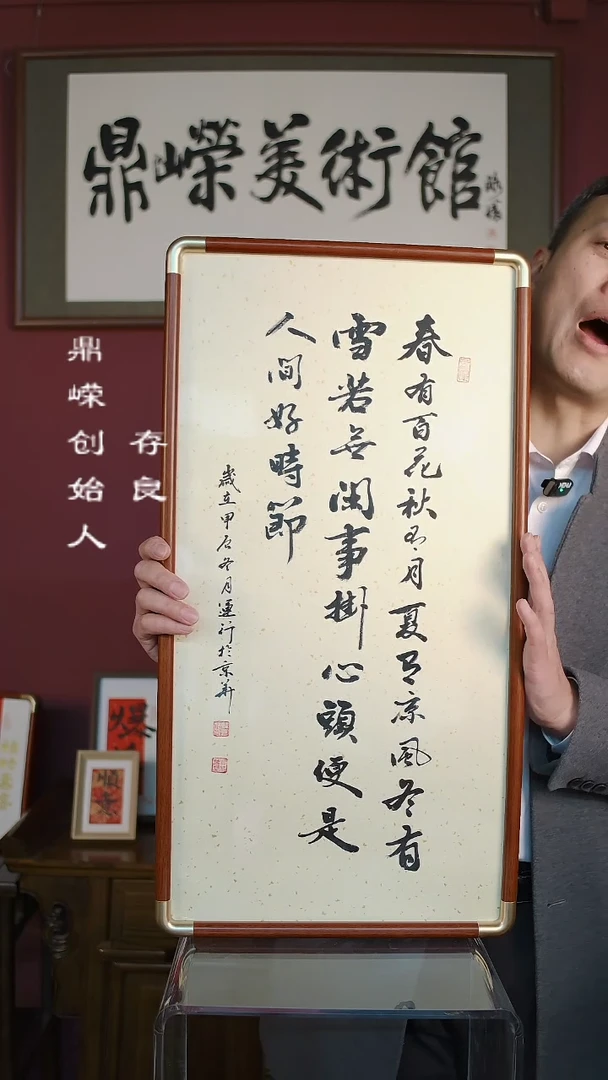 鼎嶸美術館
春有百花秋有月夏有凉風冬有
雪若無閑事掛心頭便是
人間好時節
歲在甲辰冬月運行於京華
鼎嵘创始人
存良
順意